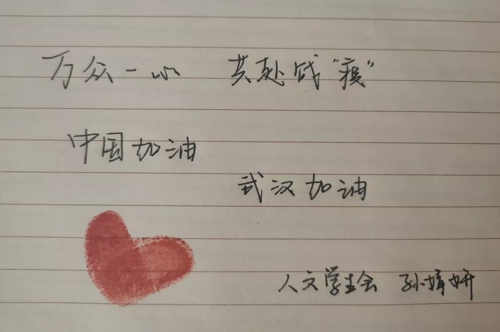 万众一心 共赴战“疫”
中国加油
武汉加油
人文学生会 孙婧妍